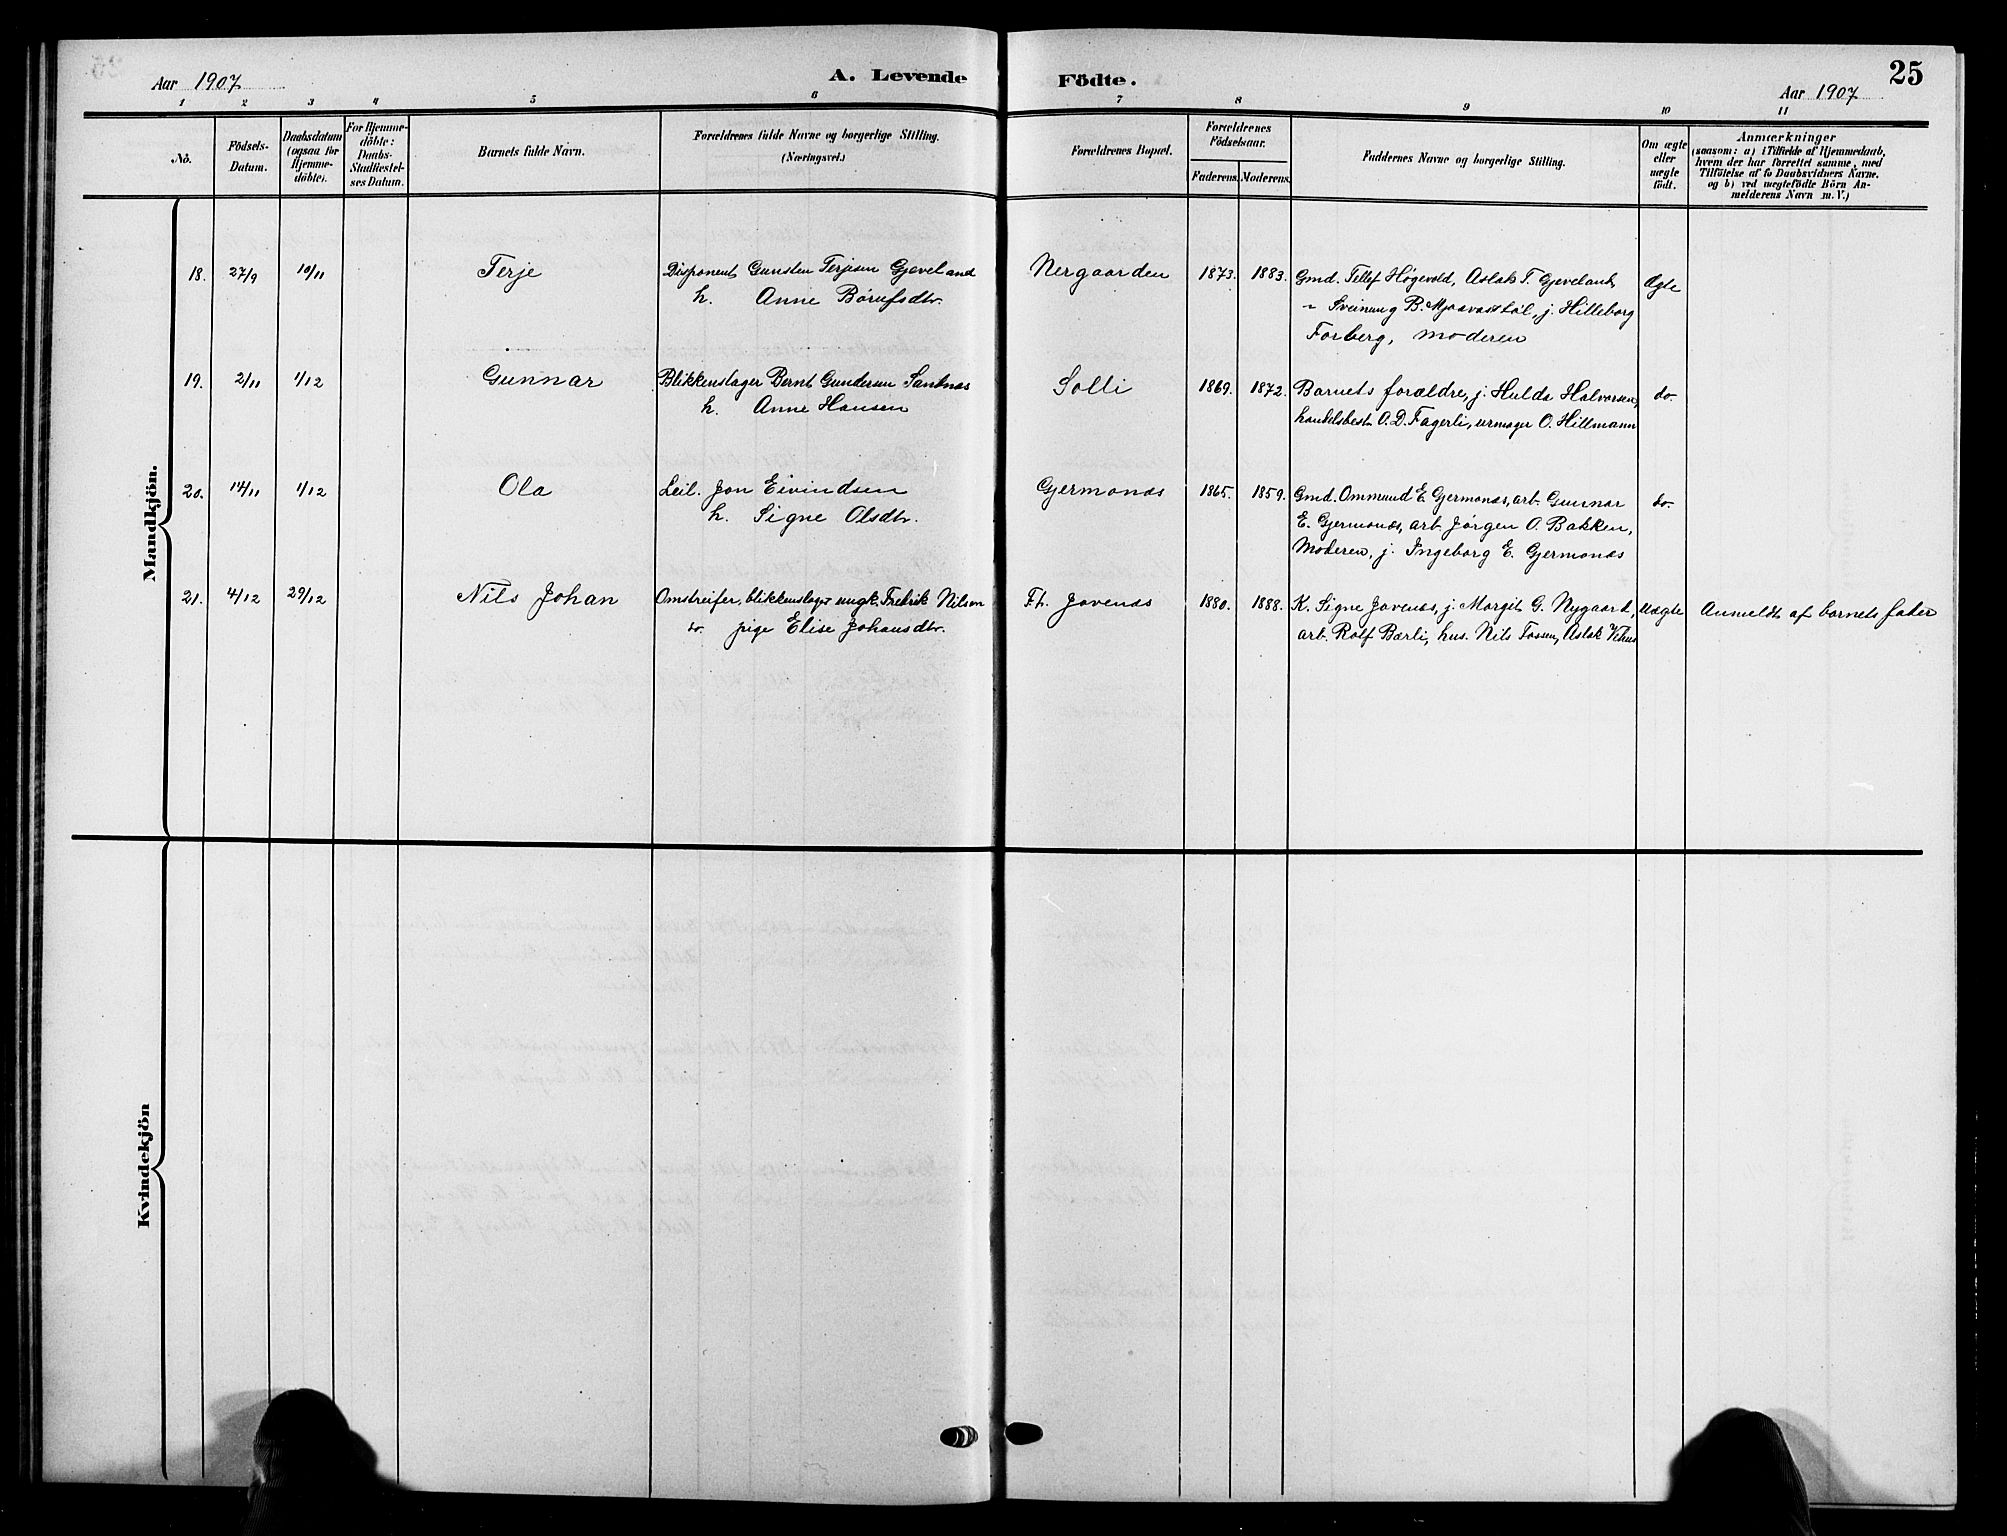 Aar 1907
A. Levende Födte.
25
Aar 1907
1 2 3 4 5 6 7 8 9 10 11
No.
Födsels-Datum.
Daabsdatum (ogsaa for Hjemme-döbte).
For Hjemme-döbte: Daabs-Stadfæstel-ses Datum.
Barnets fulde Navn.
Forældrenes fulde Navne og borgerlige Stilling.
(Næringsvei.)
Forældrenes Bopæl.
Forældrenes Födselsaar.
Faderens. Moderens.
Faddernes Navne og borgerlige Stilling.
Om ægte eller uægte födt.
Anmærkninger
(saasom: a) i Tilfælde af Hjemmedaab,
hvem der har forrettet samme, med
Tilföielse af to Daabsvidners Navne.
og b) ved uægtefödte Börn An-
melderens Navn m. V.)
Mandkjön.
18. 27/9 10/11 Terje Disponent Gunsten Terjesen Gjeveland Nergaarden 1873. 1883. Gmd. Tellef Høgevold, Aslak T. Gjeveland Ægte
h. Anne Børufsdtr. " Sveinung B. Mjaavasstøl, j. Hilleborg
Forberg, Moderen
19. 2/11 1/12 Gunnar Blikkenslager Bernt Gundersen Santnæs Solli 1869. 1872. Barnets forældre, j. Hulda Halvorsen, do.
h. Anne Hansen handelsbest. O. D. Fagerli, urmager O. Hillmann
20. 14/11 1/12 Ola Leil. Jon Eivindsen Gjermonæs 1865. 1859. Gmd. Ommund E. Gjermonæs, arb. Gunnar do.
h. Signe Olsdtr. E. Gjermonæs, arb. Jørgen O. Bakken,
Moderen, j. Ingeborg E. Gjermonæs
21. 4/12 29/12 Nils Johan Omstreifer, blikkenslager ungk. Fredrik Nilsen Ft. Jovenæs 1880. 1888. K. Signe Jovenæs, j. Margit G. Nygaard, Uægte Anmeldt af barnets fader
do. pige Elise Johansdtr. arb. Rolf Bærli, hus. Nils Fossen, Aslak Vehus
Kvindekjön